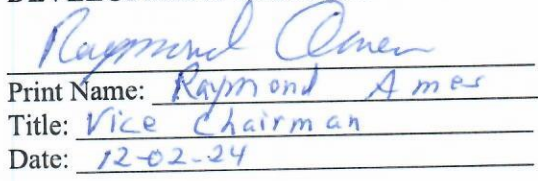 Raymond Ames
Print Name: Raymond Ames
Title: Vice Chairman
Date: 12-02-24